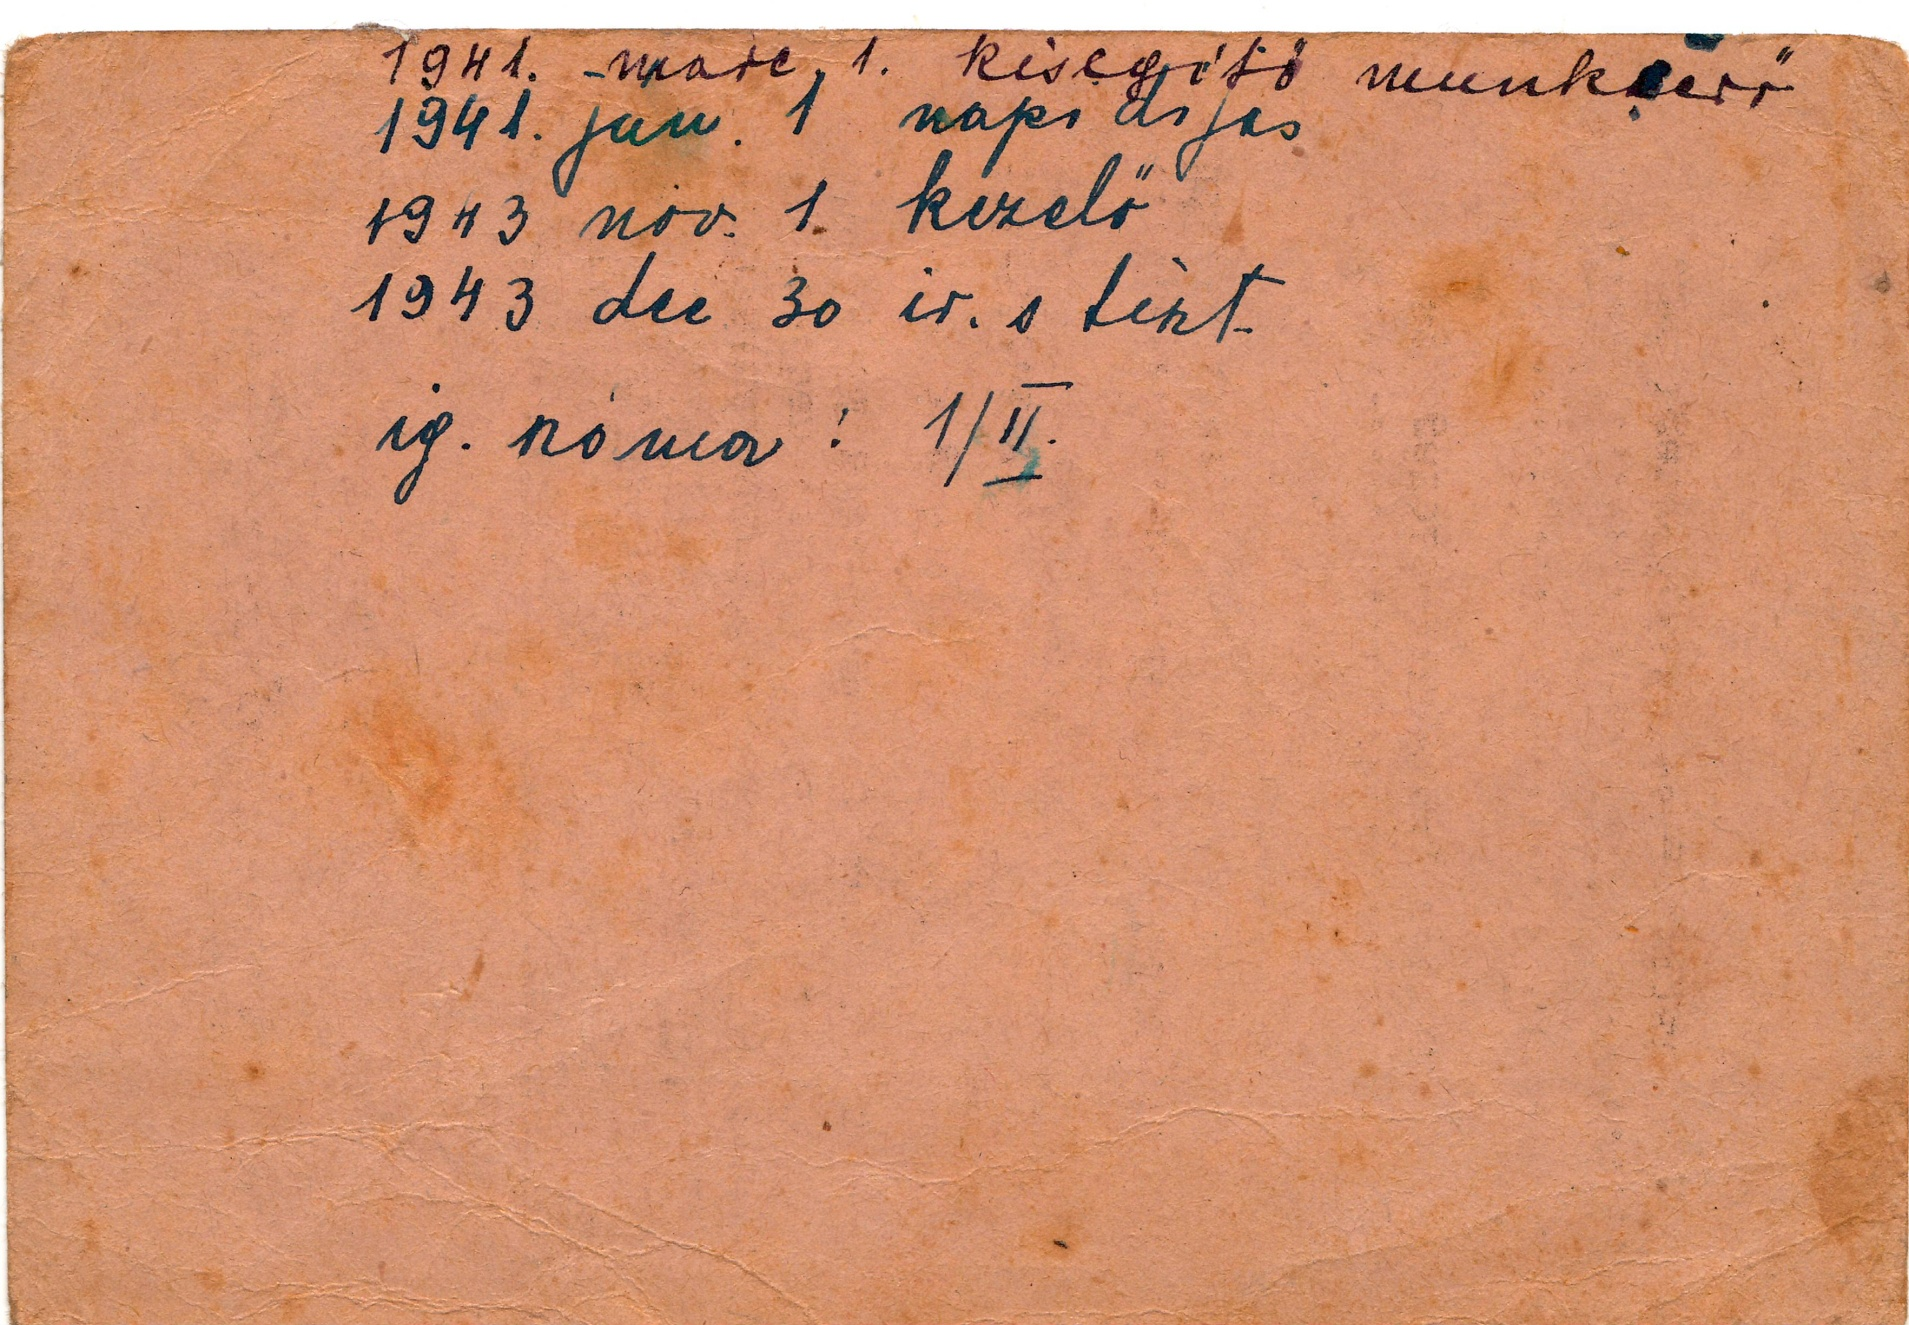 1941. marc. 1. kisegítő munkaerő
1941. jun. 1 napidíjas
1943 nov. 1. kezelő
1943 dec 30 ir. s tiszt.
ig. száma: 1/II.